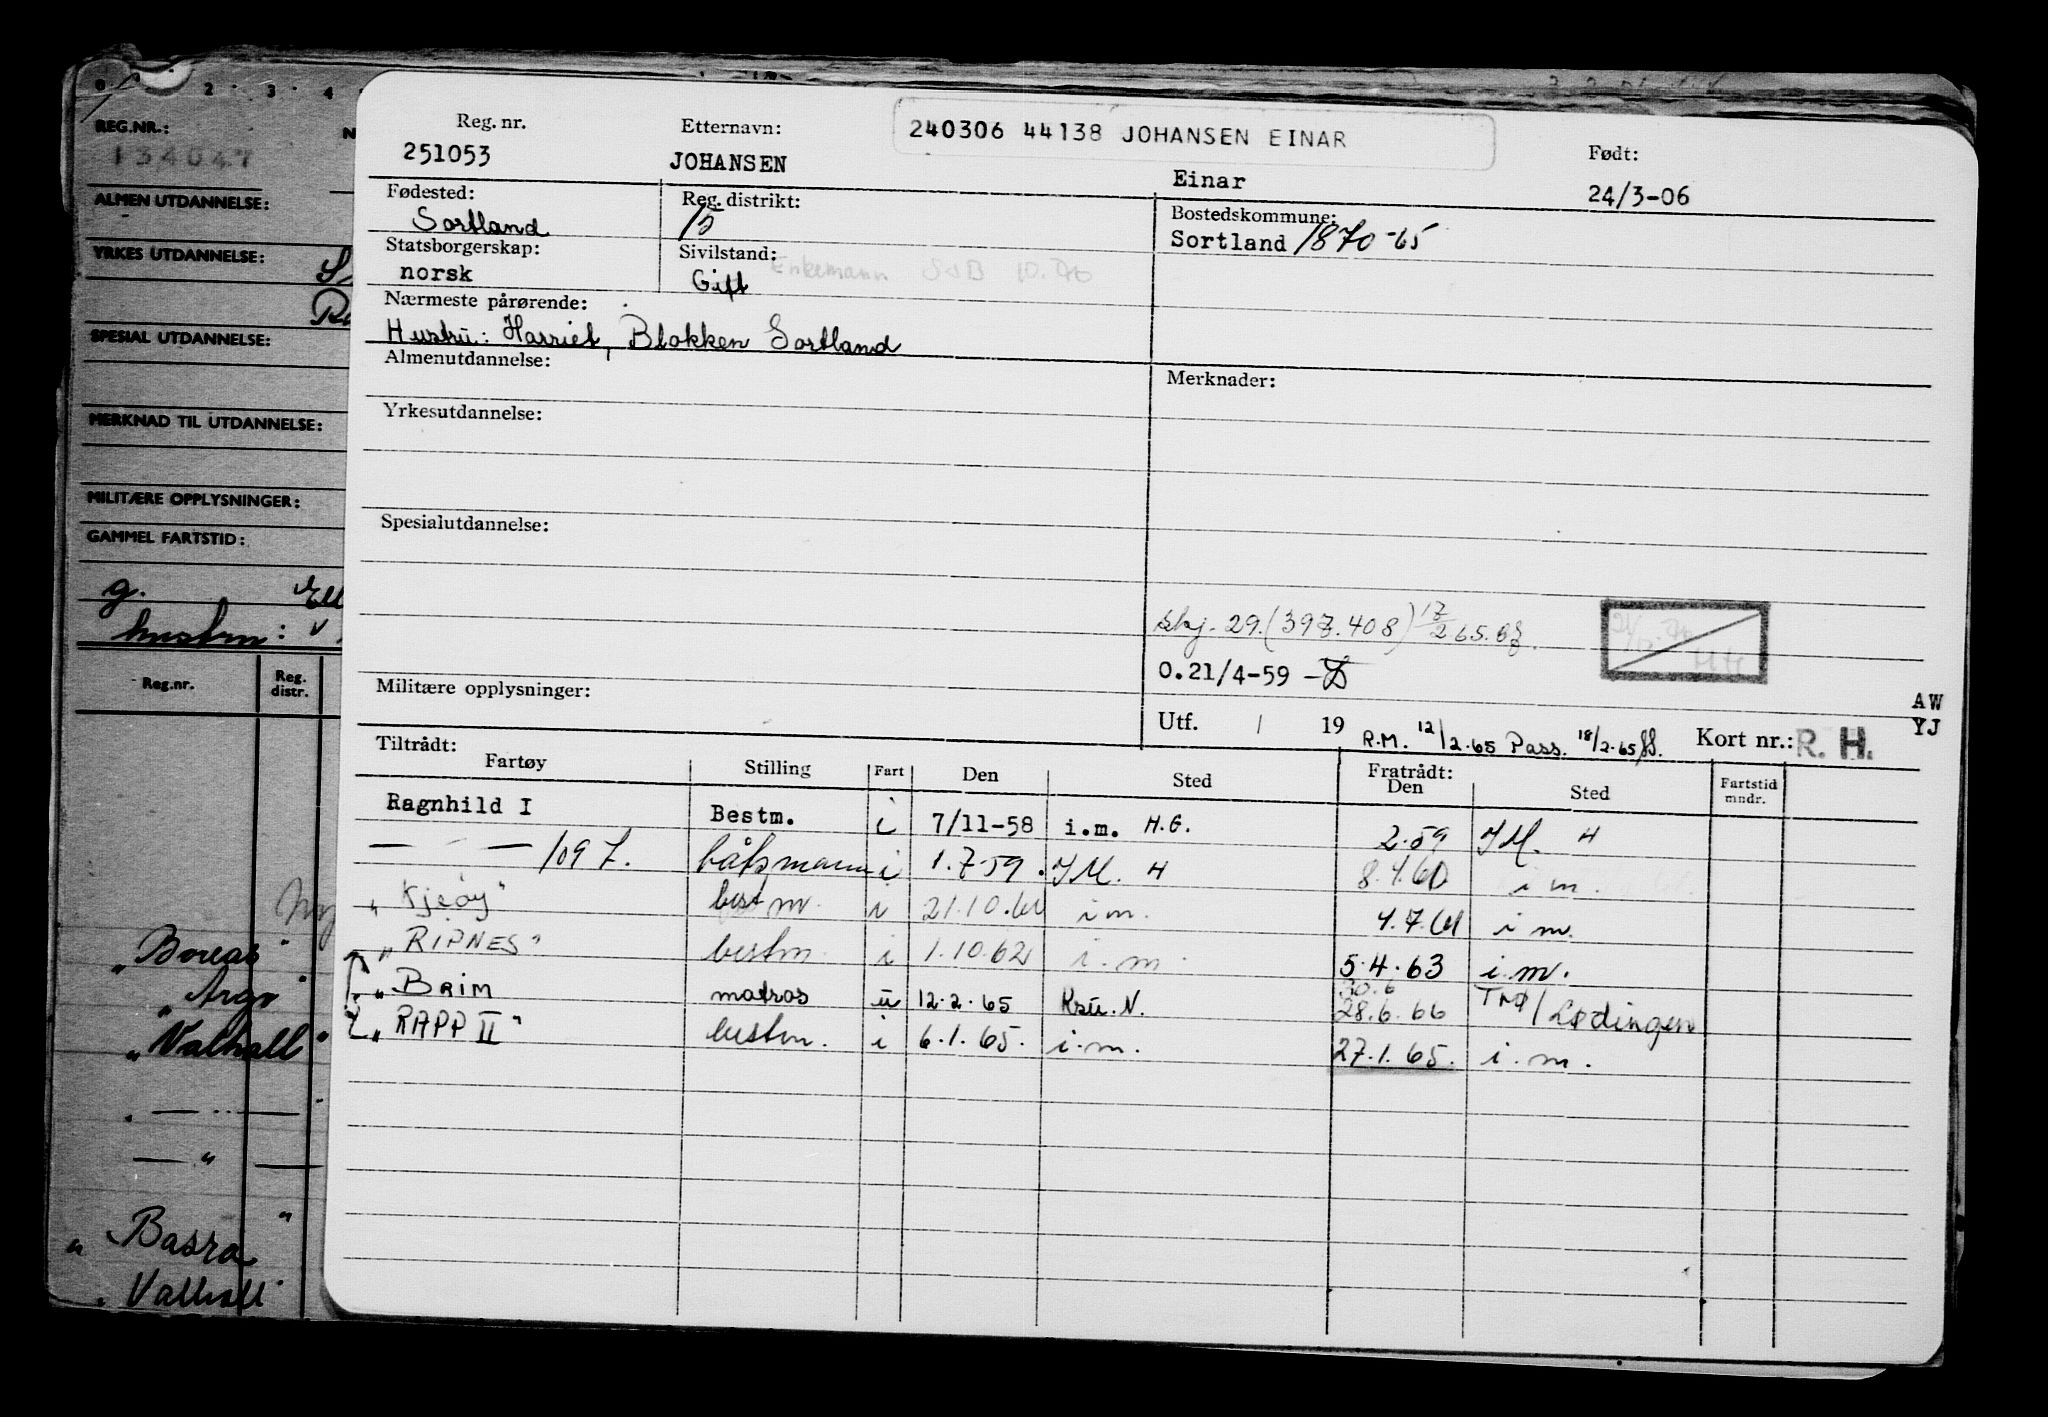 0 2 3 4
REG.NR.:
134047
ALMEN UTDANNELSE:
YRKES UTDANNELSE:
SPESIAL UTDANNELSE:
MERKNAD TIL UTDANNELSE:
MILITÆRE OPPLYSNINGER:
GAMMEL FARTSTID:
g.
hustru:
Reg.nr. Reg. distr.
"Boreas"
"Argo"
"Valhall"
" — — "
— " —
"Basra"
"Valhall"
Reg. nr. Etternavn: 240306 44138 JOHANSEN EINAR Født:
251053 JOHANSEN Einar 24/3-06
Fødested: Reg. distrikt: Bostedskommune:
Sortland 15 Sortland 1870-65
Statsborgerskap: Sivilstand:
norsk Gift Enkemann
Nærmeste pårørende:
Hustru: Harriet, Blokken Sortland
Almenutdannelse: Merknader:
Yrkesutdannelse:
Spesialutdannelse:
Skj. 29. (397.408) 17/2 65.
0.21/4-59 -
Militære opplysninger: AW
Utf. / 19 R.M. 12/2-65 Pass. 18/2-65 Kort nr.: R. H. YJ
Tiltrådt: Fratrådt:
Fartøy Stilling Fart Den Sted Den Sted Fartstid mndr.
Ragnhild I Bestm. i 7/11-58 i.m. H.G. 2.59 IM. H
— " — 109 Z. båtsmann i 1.7.59. IM. H 8.4.60 i m.
"Kjeøy" bestm. i 21.10.60 i m. 4.7.61 i m.
"RIPNES" bestm. i 1.10.62 i. m. 5.4.63 i.m.
"BRIM matros u 12.2.65 Ksu. N. 30.6 28.6.66 TMØ/Lødingen
"RAPP II" bestm. i 6.1.65. i.m. 27.1.65. i.m.